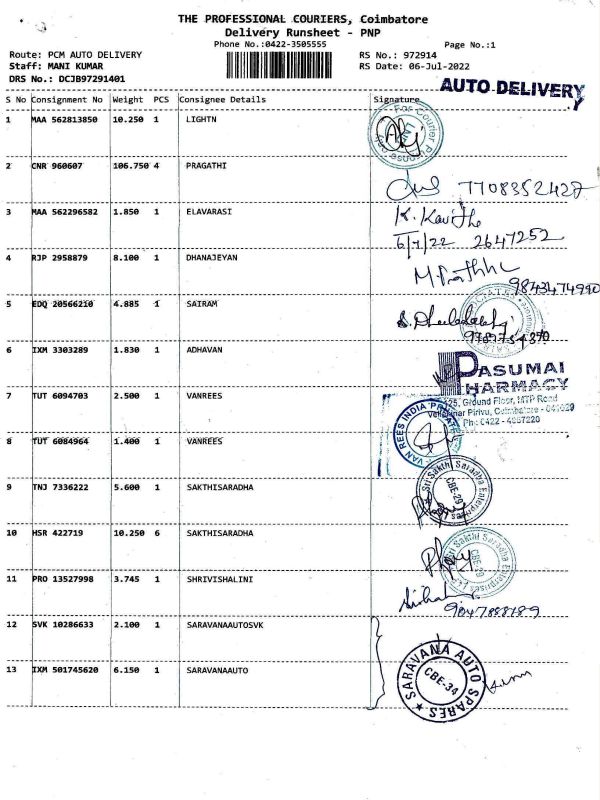 THE PROFESSIONAL COURIERS, Coimbatore
Delivery Runsheet - PNP
Phone No.:0422-3505555
Page No.:1
Route: PCM AUTO DELIVERY
RS No.: 972914
Staff: MANI KUMAR
RS Date: 06-Jul-2022
DRS No.: DCJB97291401
AUTO DELIVERY
S No Consignment No Weight PCS Consignee Details Signature
1 MAA 562813850 10.250 1 LIGHTN
For Courier
2 CNR 960607 106.750 4 PRAGATHI
7708352428
3 MAA 562296582 1.850 1 ELAVARASI
K. Kavitha
6/7/22 2647252
4 RJP 2958879 8.100 1 DHANAJEYAN
9843474990
5 EDQ 20566210 4.885 1 SAIRAM
6 IXM 3303289 1.830 1 ADHAVAN
PASUMAI
PHARMACY
Ground Floor, MTP Road
Pirivu, Coimbatore - 641029
Ph: 0422 - 4957220
7 TUT 6094703 2.500 1 VANREES
VAN REES INDIA
8 TUT 6084964 1.400 1 VANREES
9 TNJ 7336222 5.600 1 SAKTHISARADHA
Sri Sakthi Saradha Enterprises
CBE-29
10 HSR 422719 10.250 6 SAKTHISARADHA
Sri Sakthi Saradha Enterprises
CBE-29
11 PRO 13527998 3.745 1 SHRIVISHALINI
9047888189
12 SVK 10286633 2.100 1 SARAVANAAUTOSVK
13 IXM 501745620 6.150 1 SARAVANAAUTO
SARAVANA AUTO SPARES
CBE-34